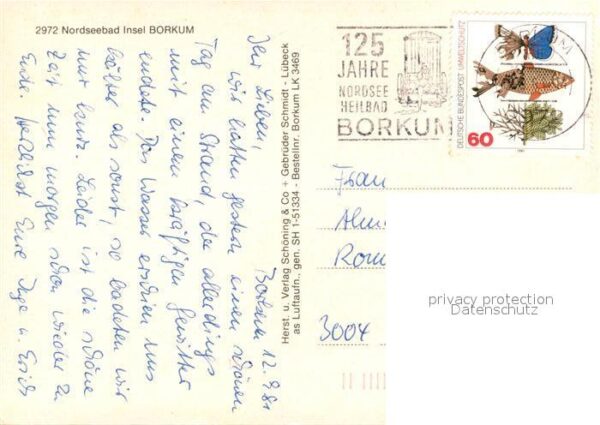 2972 Nordseebad Insel BORKUM
Borkum 12.9.81
Ihr Lieben,
wir hatten gestern einen schönen
Tag am Strand, der allerdings
mit einem kräftigen Gewitter
endete. Das Wasser erschien uns
kälter als sonst, so badeten wir
nur kurz. Leider ist die schöne
Zeit nun morgen schon wieder zu
Ende. Herzlichst Eure Inge u. Erich
Herst. u. Verlag Schöning & Co + Gebrüder Schmidt - Lübeck
as Luftaufn., gen. SH 1-51334 - Bestellnr. Borkum LK 3469
125
JAHRE
NORDSEE
HEILBAD
BORKUM
DEUTSCHE BUNDESPOST UMWELTSCHUTZ
60
Frau
Alm
Rom
3004
privacy protection
Datenschutz